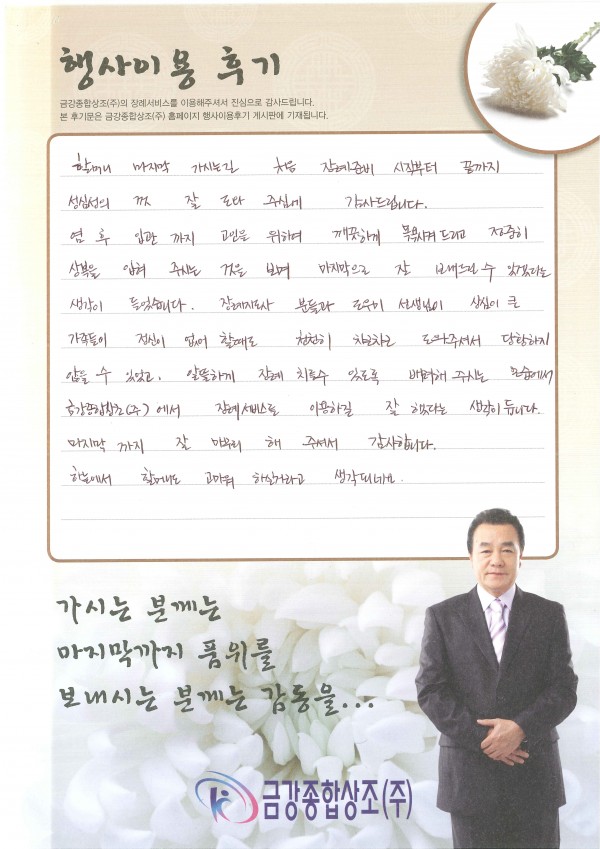 행사이용 후기
금강종합상조(주)의 장례서비스를 이용해주셔서 진심으로 감사드립니다.
본 후기문은 금강종합상조(주) 홈페이지 행사이용후기 게시판에 기재됩니다.
할머니 마지막 가시는길 처음 장례준비 시작부터 끝까지
성심성의 껏 잘 도와 주심에 감사드립니다.
염 후 입관 까지 고인을 위하여 깨끗하게 목욕시켜 드리고 정중히
상복을 입혀 주시는 것을 보며 마지막으로 잘 보내드릴 수 있겠다는
생각이 들었습니다. 장례지도사 분들과 도우미 선생님이 상심이 큰
가족들이 정신이 없어 할때도 천천히 차근차근 도와주셔서 당황하지
않을 수 있었고, 알뜰하게 장례 치를수 있도록 배려해 주시는 모습에서
금강종합상조(주) 에서 장례서비스를 이용하길 잘 했다는 생각이 듭니다.
마지막 까지 잘 마무리 해 주셔서 감사합니다.
하늘에서 할머니도 고마워 하실거라고 생각되네요.
가시는 분께는
마지막까지 품위를
보내시는 분께는 감동을...
금강종합상조(주)